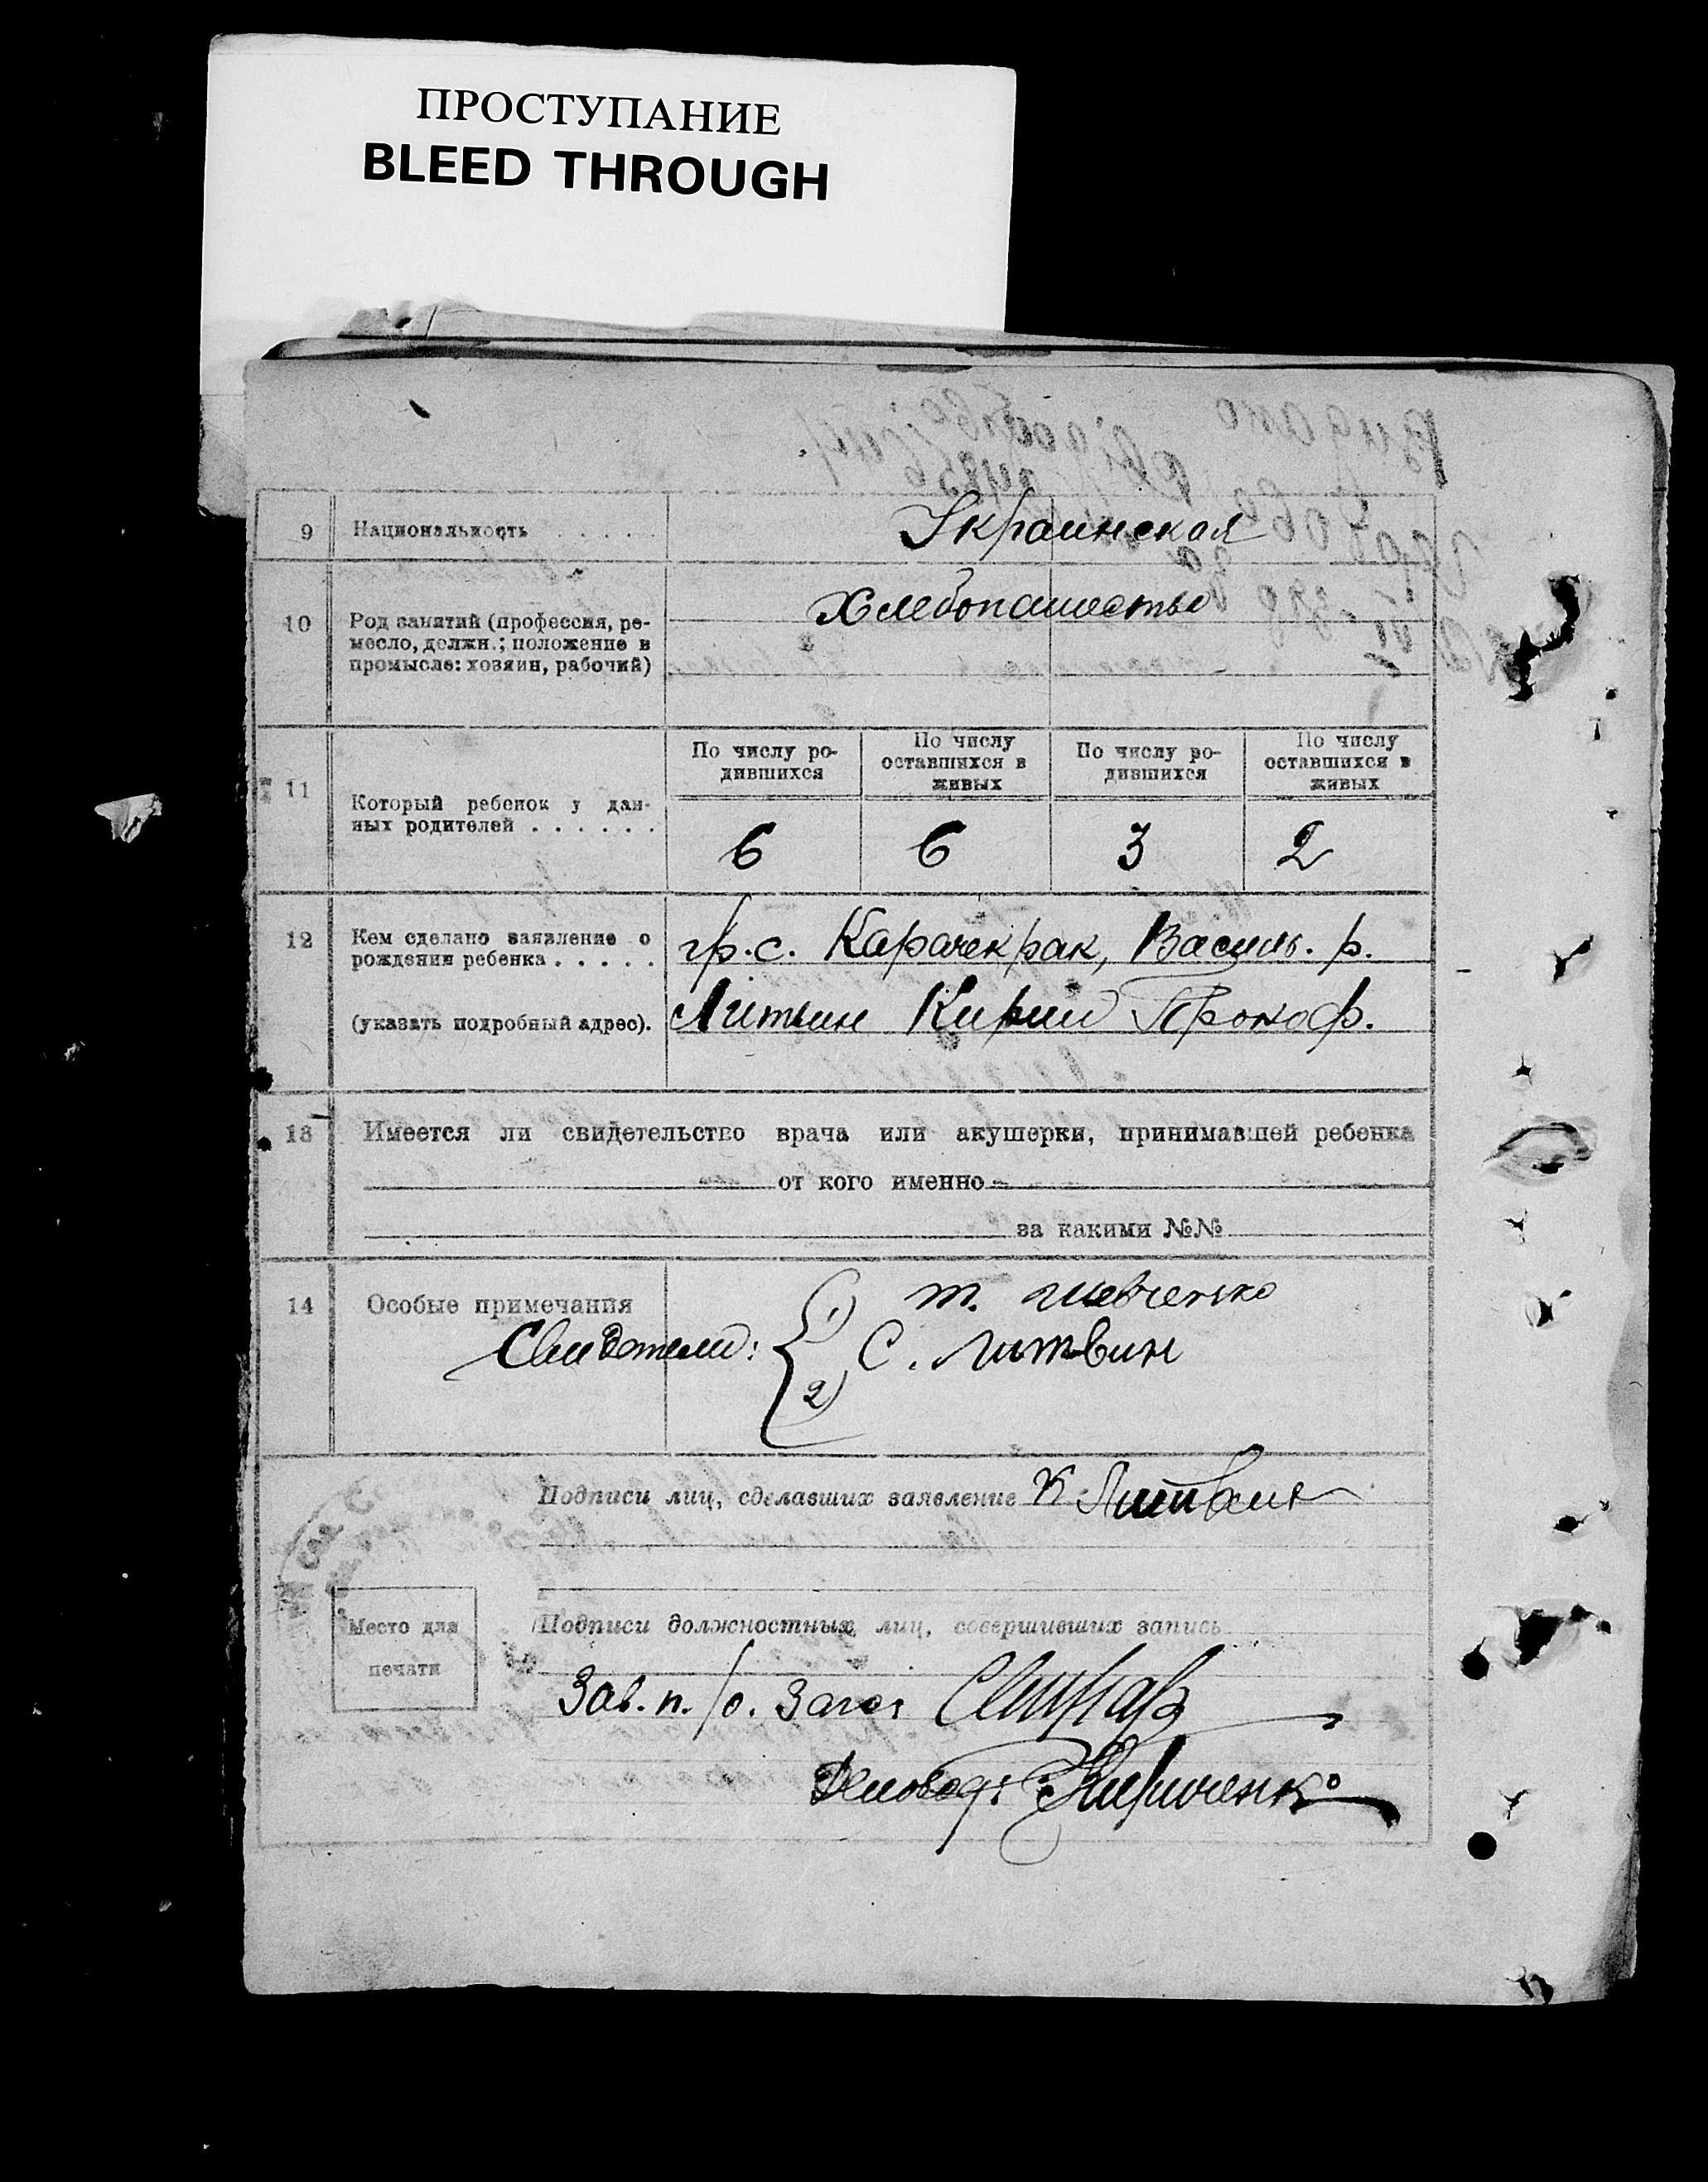 ПРОСТУПАНИЕ
BLEED THROUGH
9 Национальность . . . . . Украинская
10 Род занятий (профессия, ре-
месло, должн.; положение в
промысле: хозяин, рабочий)
Хлебопашество
11 Который ребенок у дан-
ных родителей . . . . . .
По числу ро-
дившихся
По числу
оставшихся в
живых
По числу ро-
дившихся
По числу
оставшихся в
живых
6 6 3 2
12 Кем сделано заявление о
рождении ребенка . . . . .
(указать подробный адрес).
гр. с. Карачекрак, Василь. р.
Литвин Кирил Прокоф.
13 Имеется ли свидетельство врача или акушерки, принимавшей ребенка
от кого именно
за какими №№
14 Особые примечания
Свидетели: 1) Т. Шевченко
2) С. Литвин
Подписи лиц, сделавших заявление К. Литвин
Место для
печати
Подписи должностных лиц, совершивших запись
Зав. п./о. Загс:
Деловод: Кириченко